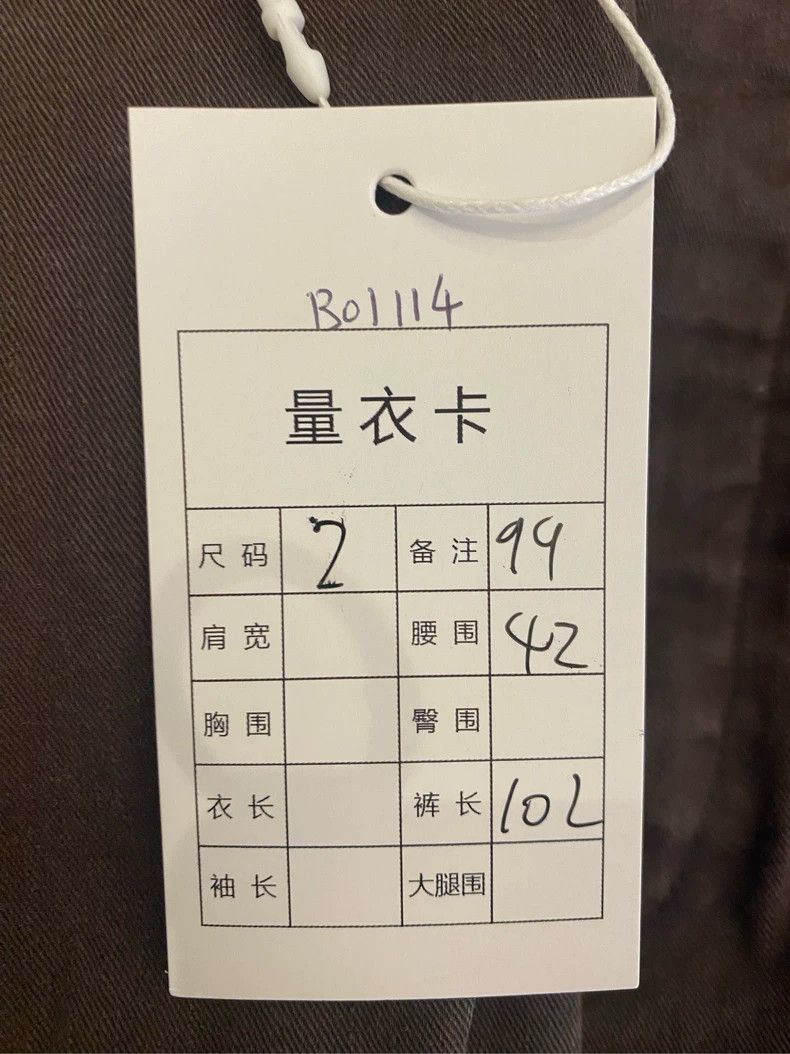 B01114
量衣卡
尺码 2 备注 99
肩宽 腰围 42
胸围 臀围
衣长 裤长 102
袖长 大腿围